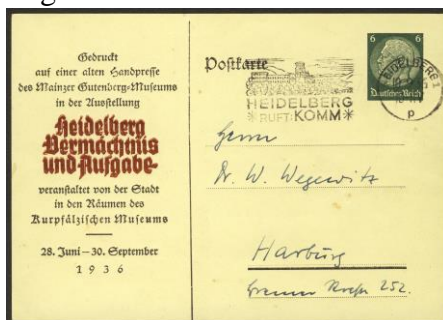 Gedruckt
auf einer alten Handpresse
des Mainzer Gutenberg-Museums
in der Ausstellung
Heidelberg
Vermächtnis
und Aufgabe
veranstaltet von der Stadt
in den Räumen des
Kurpfälzischen Museums
28. Juni – 30. September
1936
Postkarte
HEIDELBERG
RUFT: KOMM
6 6
Deutsches Reich
HEIDELBERG
p
Herrn
Dr. W. Wegewitz
Harburg
252.